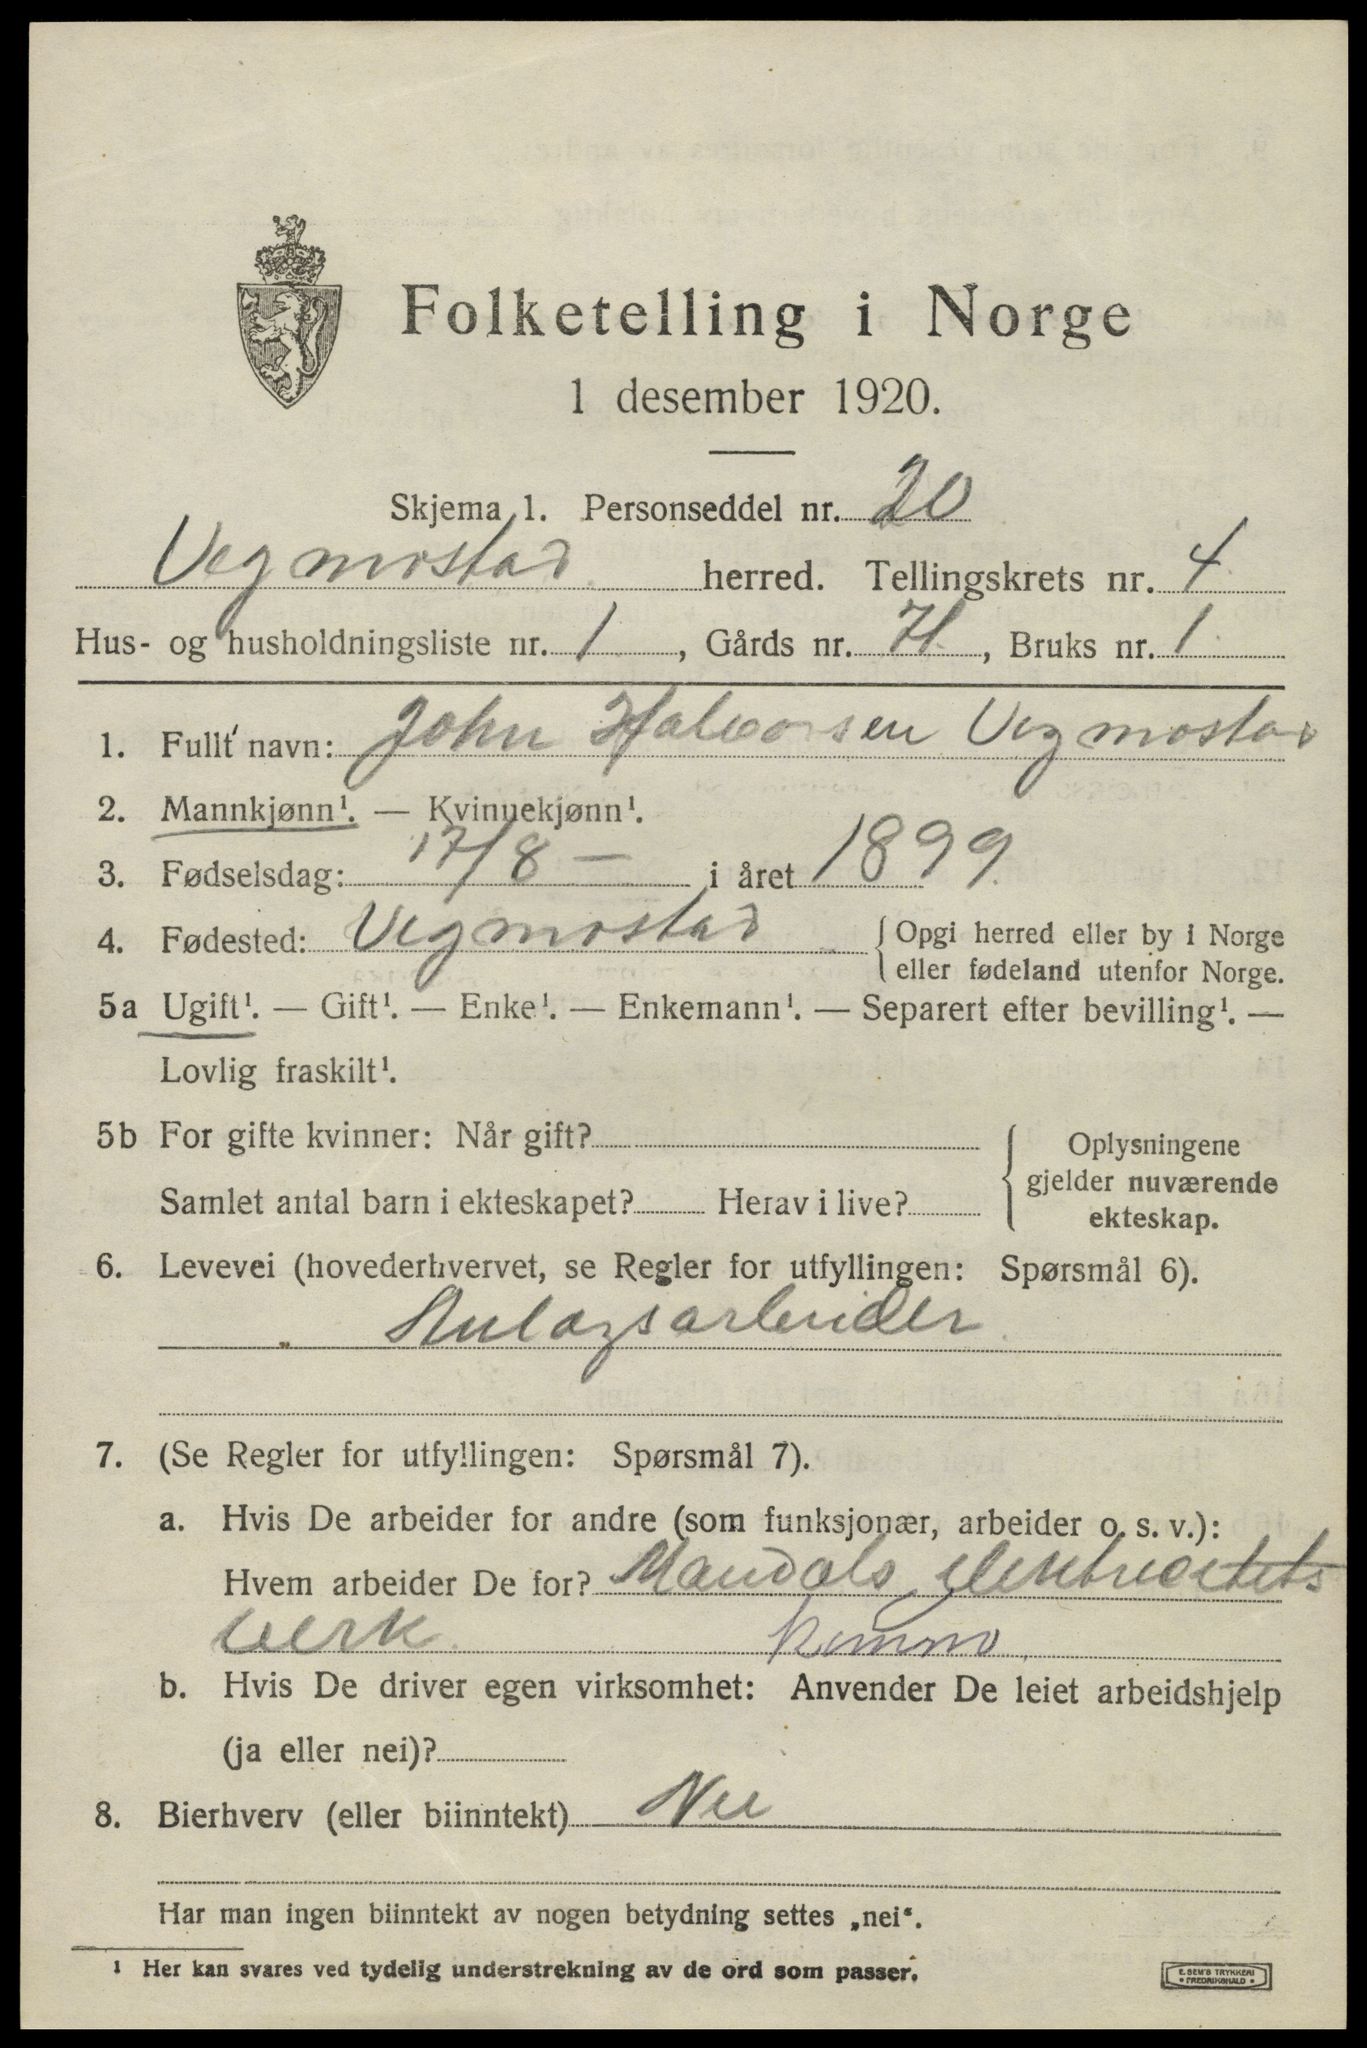 Folketelling i Norge
1 desember 1920.
Skjema 1. Personseddel nr. 20
Vegmostad herred. Tellingskrets nr. 4
Hus- og husholdningsliste nr. 1, Gårds nr. 71, Bruks nr. 1
1. Fullt navn: John Halvorsen Vegmostad
2. Mannkjønn¹. — Kvinnekjønn¹.
3. Fødselsdag: 17/8 — i året 1899
4. Fødested: Vegmostad {Opgi herred eller by i Norge
eller fødeland utenfor Norge.
5a Ugift¹. — Gift¹. — Enke¹. — Enkemann¹. — Separert efter bevilling¹. —
Lovlig fraskilt¹.
5b For gifte kvinner: Når gift?
Samlet antal barn i ekteskapet? Herav i live?
{Oplysningene
gjelder nuværende
ekteskap.
6. Levevei (hovederhvervet, se Regler for utfyllingen: Spørsmål 6).
Anlagsarbeider
7. (Se Regler for utfyllingen: Spørsmål 7).
a. Hvis De arbeider for andre (som funksjonær, arbeider o. s. v.):
Hvem arbeider De for? Mandals elektricitets
verk.
b. Hvis De driver egen virksomhet: Anvender De leiet arbeidshjelp
(ja eller nei)?
8. Bierhverv (eller biinntekt) Nei
Har man ingen biinntekt av nogen betydning settes „nei“.
¹ Her kan svares ved tydelig understrekning av de ord som passer.
E. SEM'S TRYKKERI
• FREDRIKSHALD •